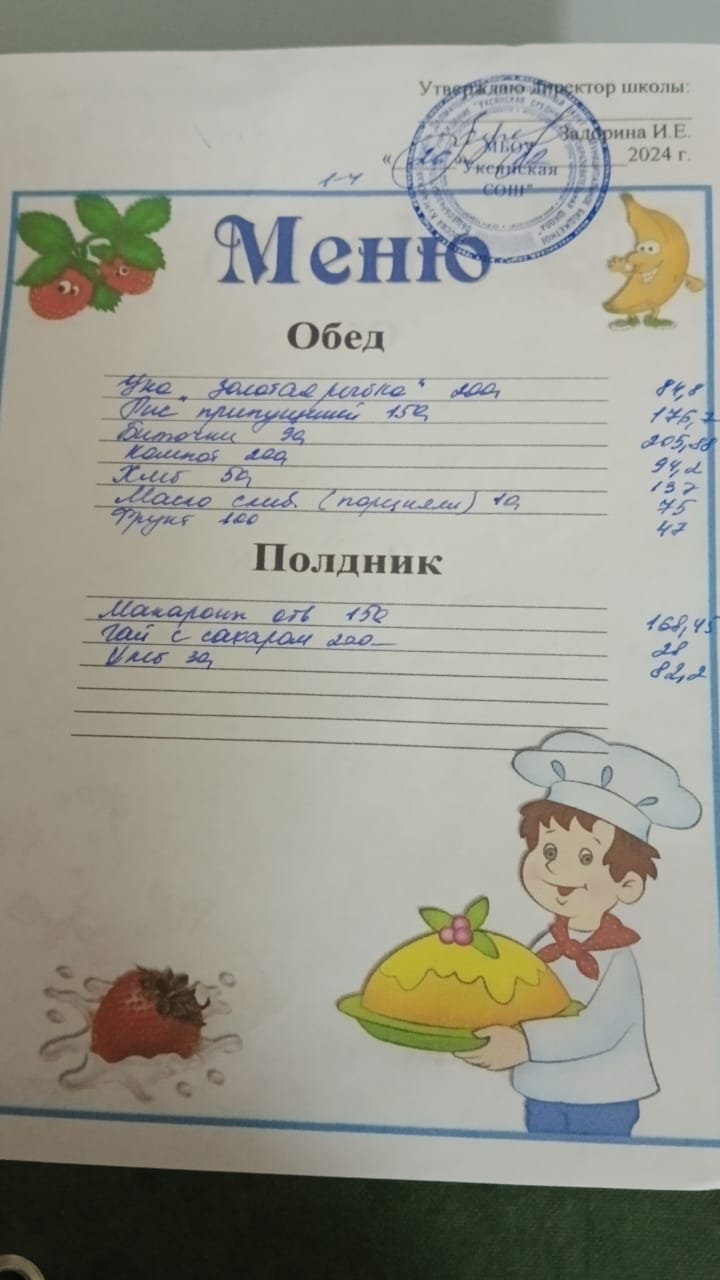 Утверждаю директор школы:
Задорина И.Е.
« 26 » 2024 г.
МБОУ
"Уксянская
СОШ"
1-4
Меню
Обед
Уха "Золотая рыбка" 200 84,8
Рис припущенный 150 176,2
Биточки 90 205,88
Компот 200 94,2
Хлеб 50 137
Масло слив. (порциями) 10 75
Фрукт 100 47
Полдник
Макароны отв 150 168,45
Чай с сахаром 200 28
Хлеб 30 82,2